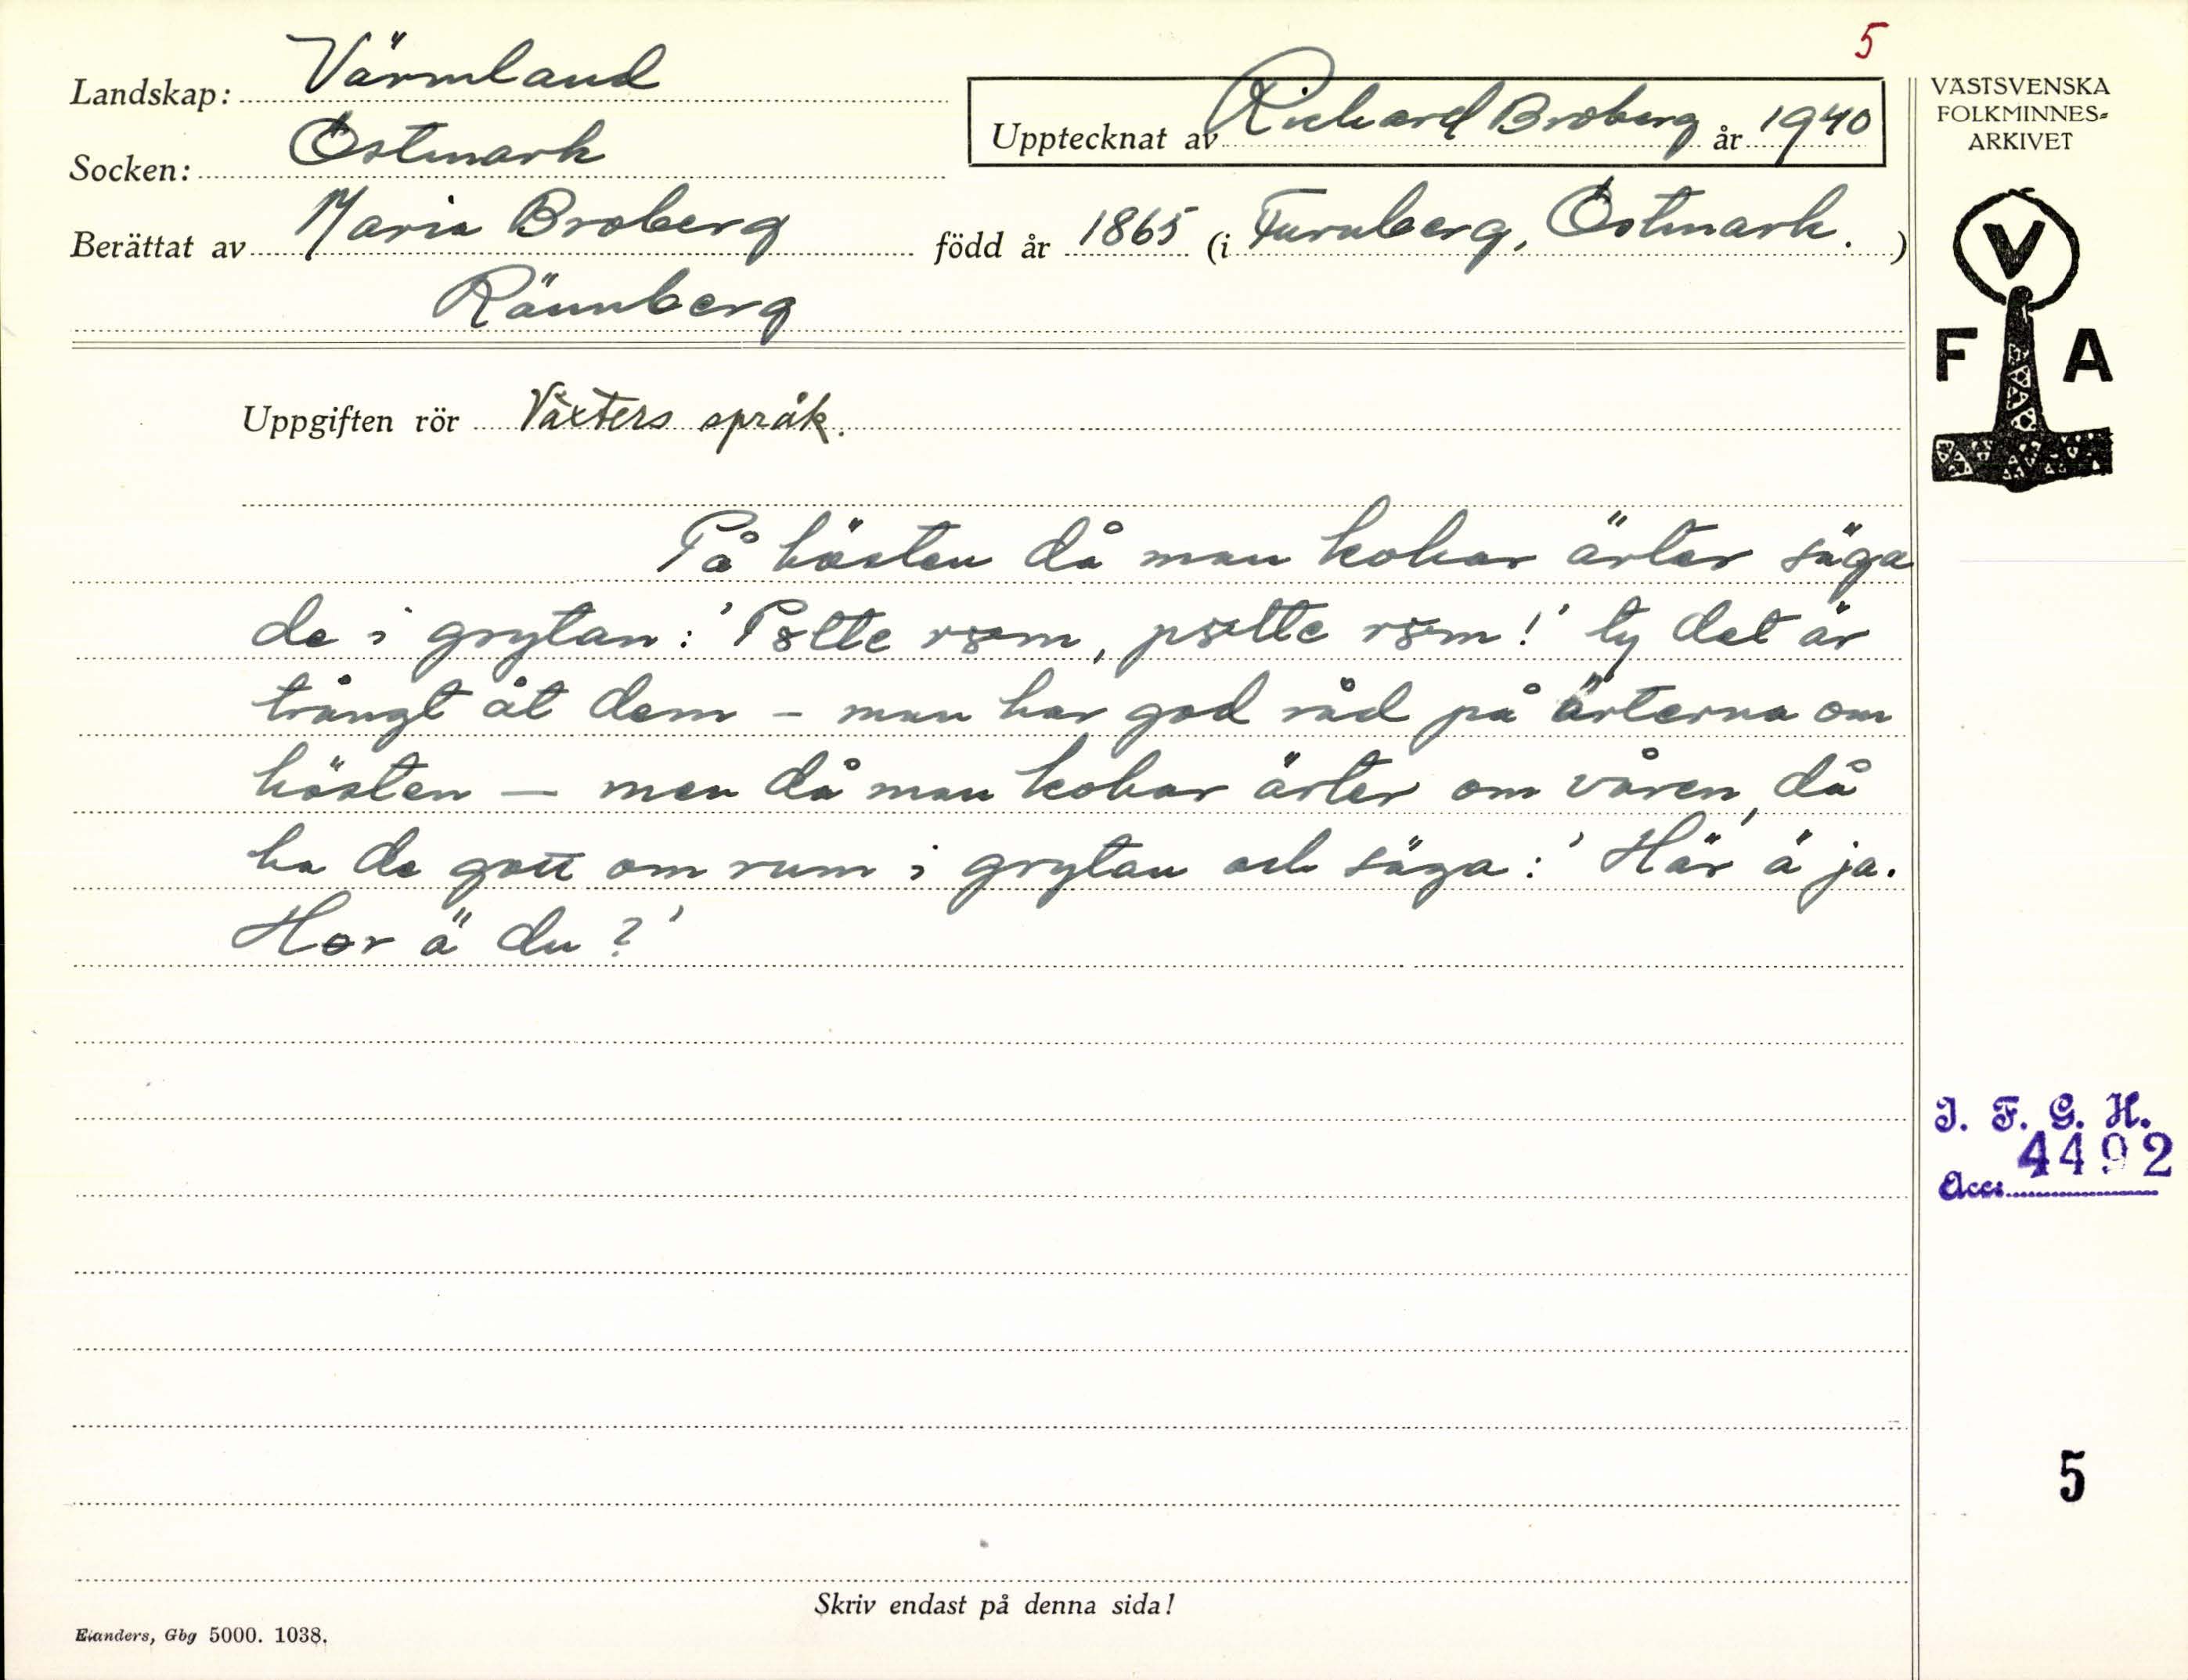 5
Landskap: Värmland
Upptecknat av Richard Broberg år 1940
Socken: Östmark
Berättat av Maria Broberg född år 1865 (i Furuberg, Östmark.)
Rännberg
Uppgiften rör Växters språk.
På hösten då man kokar ärter säga
de i grytan: 'P8tte r8m, p8tte r8m!' ty det är
trångt åt dem – man har god råd på ärterna om
hösten – men då man kokar ärter om våren, då
ha de gott om rum i grytan och säga: 'Här ä ja.
Hor ä du?'
VÄSTSVENSKA
FOLKMINNES=
ARKIVET
V
F A
I. F. G. H.
4492
Acc:
5
Skriv endast på denna sida!
Elanders, Gbg 5000. 1038.